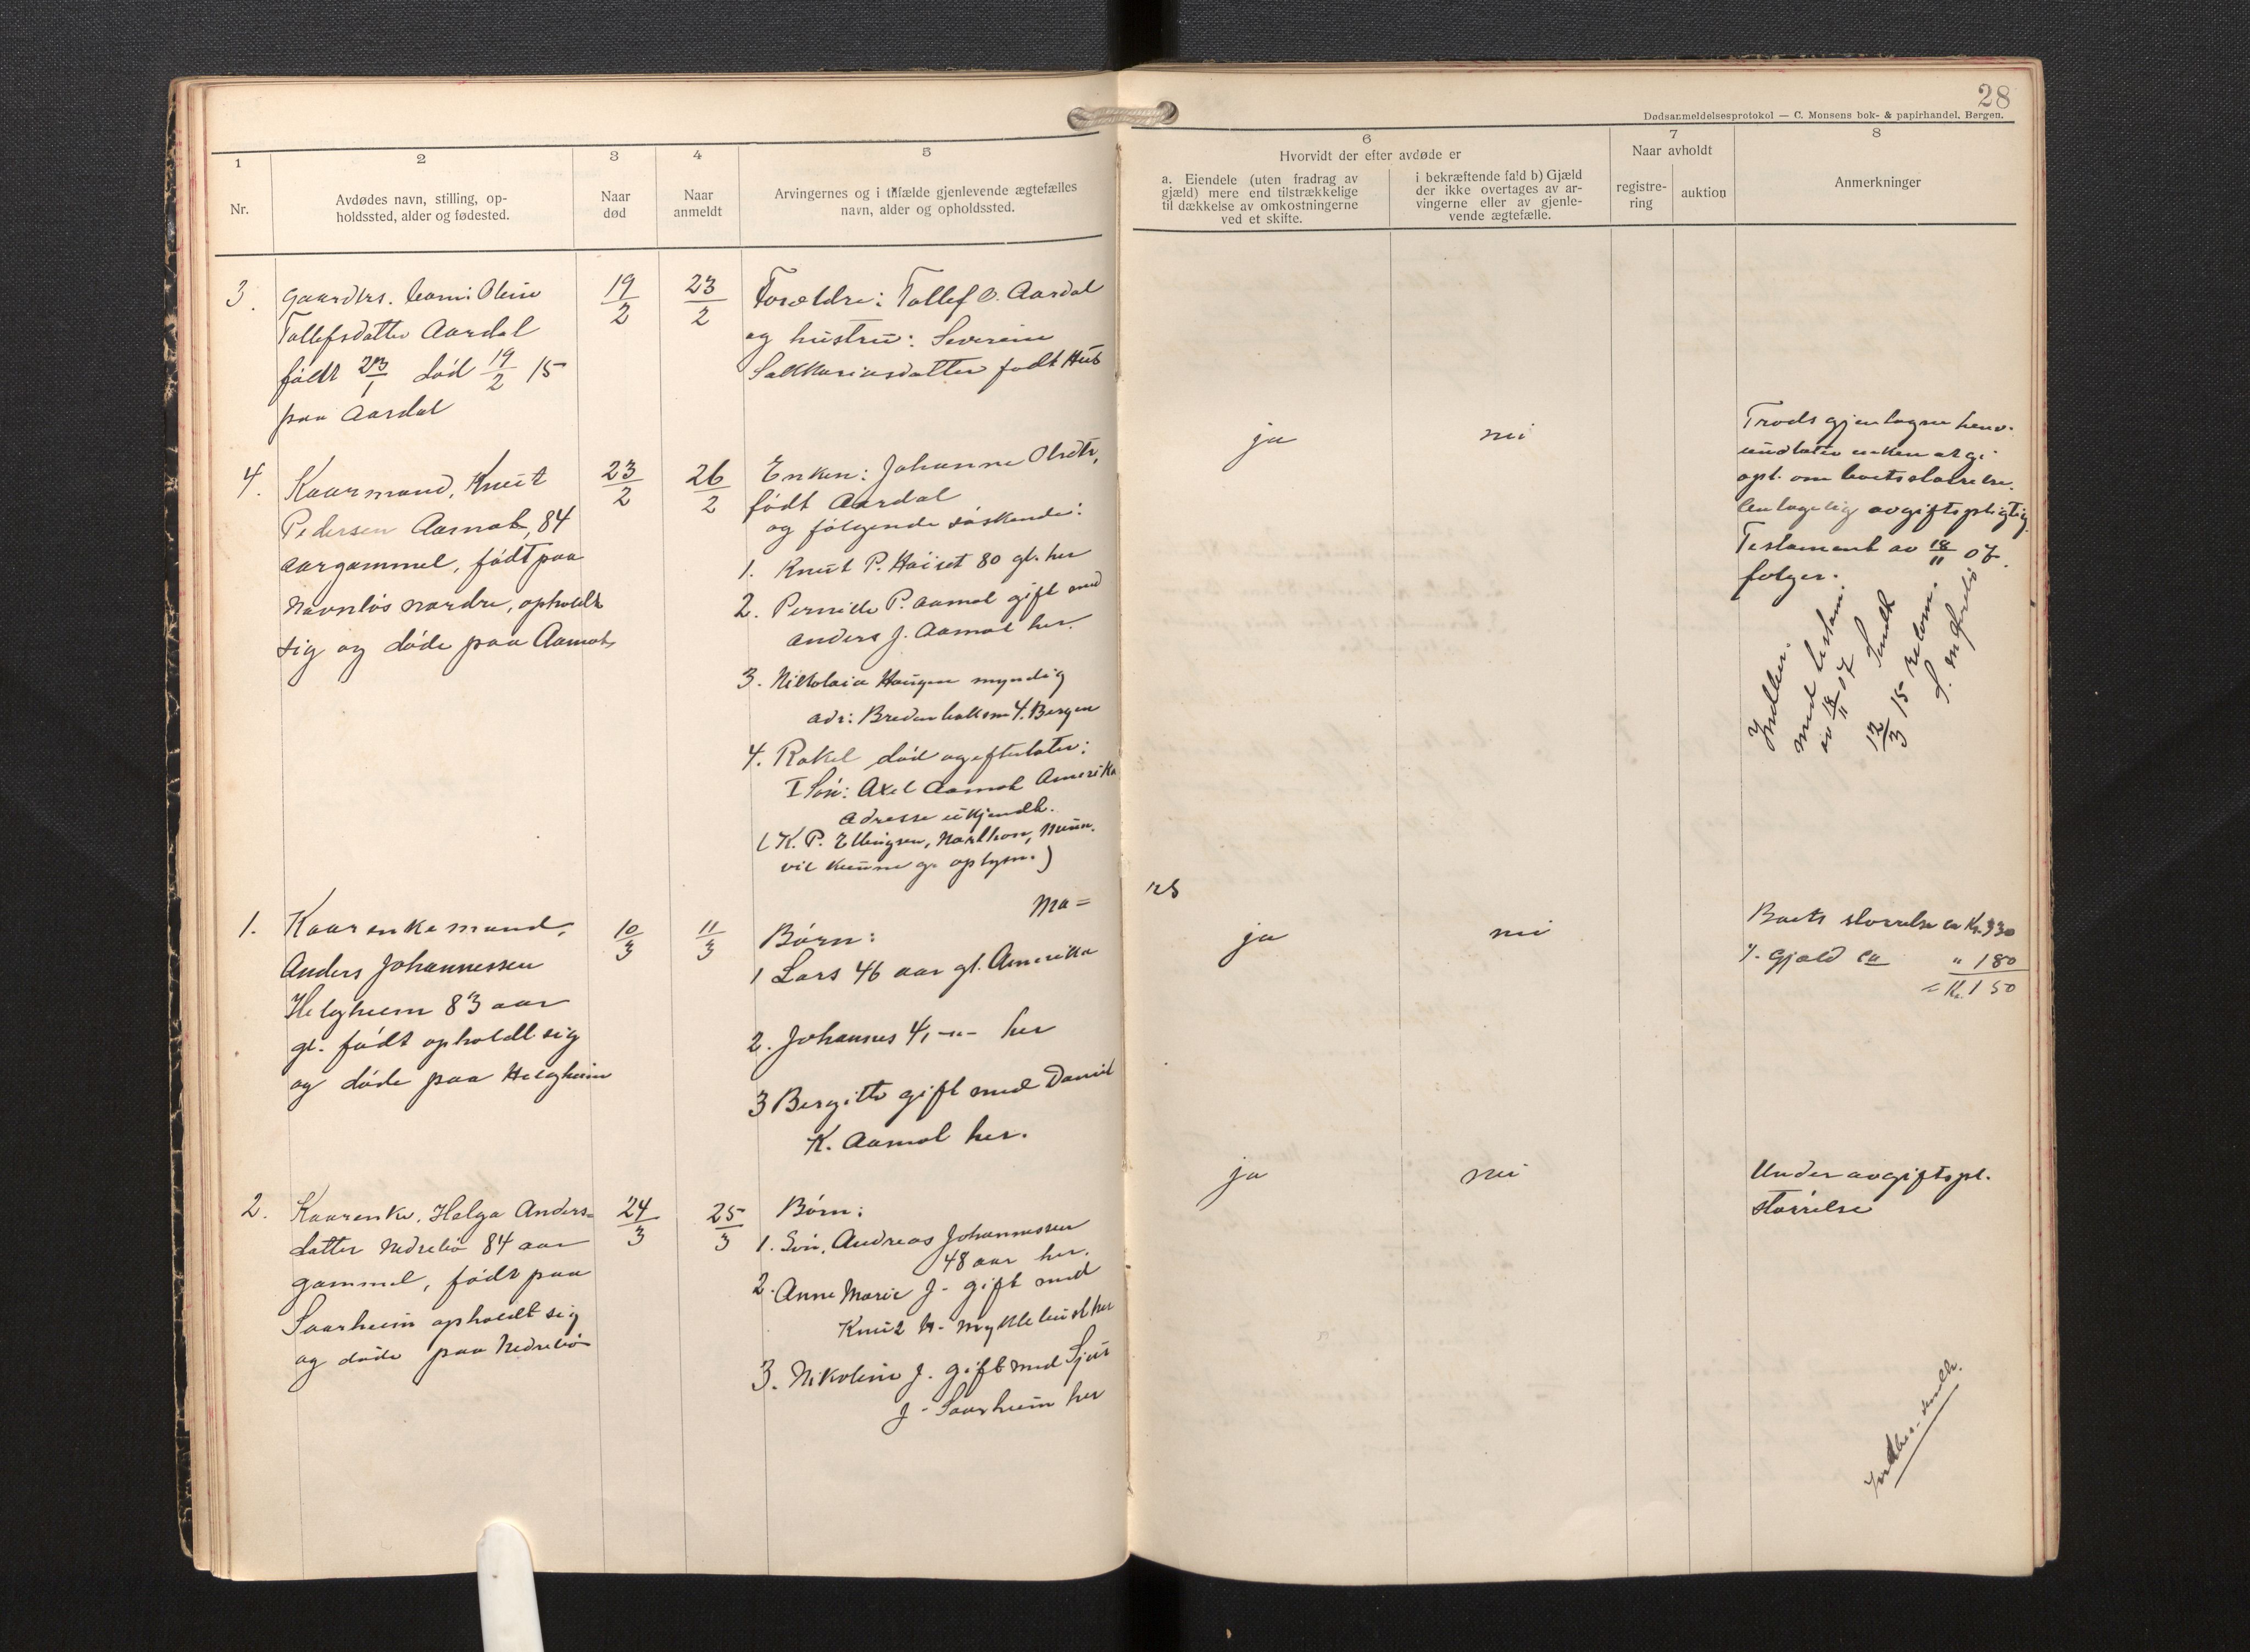 28
Dødsanmeldelsesprotokol — C. Monsens bok- & papirhandel, Bergen.
1
2
3
4
5
6
7
8
Nr.
Avdødes navn, stilling, op-
holdssted, alder og fødested.
Naar
død
Naar
anmeldt
Arvingernes og i tilfælde gjenlevende ægtefælles
navn, alder og opholdssted.
Hvorvidt der efter avdøde er
a. Eiendele (uten fradrag av
gjæld) mere end tilstrækkelige
til dækkelse av omkostningerne
ved et skifte.
i bekræftende fald b) Gjæld
der ikke overtages av ar-
vingerne eller av gjenle-
vende ægtefælle.
Naar avholdt
registre-
ring
auktion
Anmerkninger
3.
Gaardbrs. barn: Oline
Tollefsdatter Aardal
født 23/1 død 19/2 15
paa Aardal
19/2
23/2
Forældre: Tollef O. Aardal
og hustru: Severine
Sakkariasdatter født Hus
4.
Kaarmand, Knut
Pedersen Aamot, 84
aar gammel, født paa
Navnløs nordre, opholdt
sig og døde paa Aamot
23/2
26/2
Enken: Johanne Olsdtr,
født Aardal
og følgende søskende:
1. Knut P. Høiset 80 gl. her
2. Pernille P. Aamot gift med
Anders J. Aamot her.
3. Nikolaia Haugen myndig
adr: Bredenbaksm 4. Bergen
4. Rakel død og efterlater:
I Søn: Axel Aamot Amerika
Adresse ukjendt.
(K. P. Ellingsen, Minn.
vil kunne gi oplysn.)
ja
nei
Trods gjentagne henv.
undlater enken at gi
opl. om boets størrelse.
antagelig avgiftspligtig
Testament av 18/11 07
følger.
Indber.
med testam.
av 18/11 07 Sendt
12/3 15
Ma=
rs
1.
Kaarenkemand,
Anders Johannessen
Helgheim 83 aar
gl. født opholdt sig
og døde paa Helgheim
10/3
11/3
Børn:
1 Lars 46 aar gl. Amerika
2. Johannes 41 -"- her
3 Bergitte gift med Daniel
K. Aamot her.
ja
nei
Boets størrelse ca Kr. 330
÷ Gjæld ca " 180
= Kr. 150
2.
Kaarenke, Helga Anders=
datter Nedrebø 84 aar
gammel, født paa
Saarheim opholdt sig
og døde paa Nedrebø
24/3
25/3
Børn:
1. Søn, Andreas Johannessen
48 aar her.
2. Anne Marie J. gift med
Knut N. Myklebust her
3. Nikoline J. gift med Sjur
J. Saarheim her
ja
nei
Under avgiftspl.
størrelse
Indber. sendt.